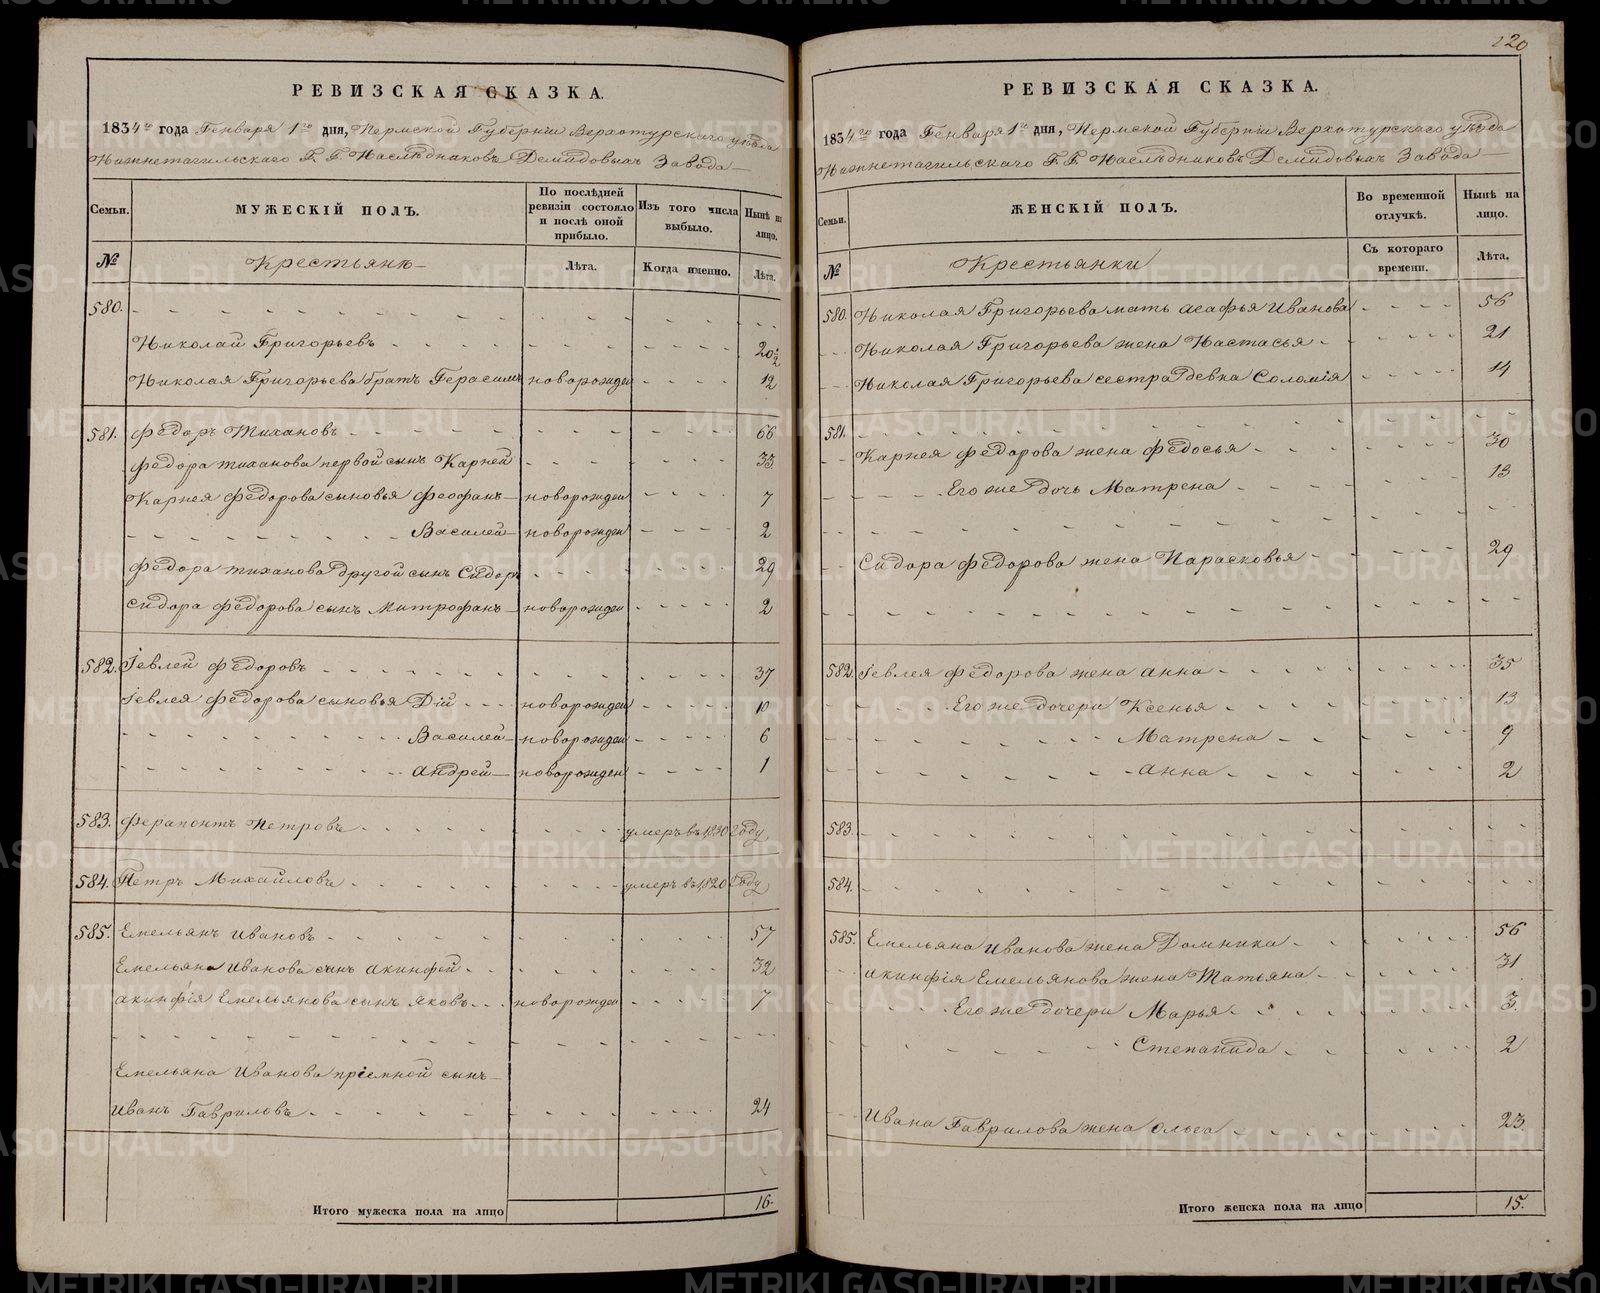 РЕВИЗСКАЯ СКАЗКА.
1834го года Генваря 1го дня, Пермской Губернiи Верхотурскаго уѣзда
Нижнетагильскаго Г. Г. Наслѣдниковъ Демидовыхъ Завода
Семьи. МУЖЕСКIЙ ПОЛЪ. По послѣдней ревизiи состояло и послѣ оной прибыло. Изъ того числа выбыло. Нынѣ на лицо.
№ Крестьянъ Лѣта. Когда именно. Лѣта.
580.
Николай Григорьевъ 20 1/2
Николая Григорьева братъ Герасимъ новорожден 12
581. Федоръ Тихановъ 66
Федора Тиханова первой сынъ Карней 33
Карнея Федорова сыновья Феофанъ новорожден 7
Василей новорожден 2
Федора Тиханова другой сынъ Сидоръ 29
Сидора Федорова сынъ Митрофанъ новорожден 2
582. Iевлей Федоровъ 37
Iевлея Федорова сыновья Дiй новорожден 10
Василей новорожден 6
Андрей новорожден 1
583. Ферапонтъ Петровъ умеръ въ 1830 году
584. Петръ Михайловъ умеръ въ 1820 году
585. Емельянъ Ивановъ 57
Емельяна Иванова сынъ Акинфей 32
Акинфiя Емельянова сынъ Яковъ новорожден 7
Емельяна Иванова прiемной сынъ
Иванъ Гавриловъ 24
Итого мужеска пола на лицо 16.
120
РЕВИЗСКАЯ СКАЗКА.
1834го года Генваря 1го дня, Пермской Губернiи Верхотурскаго уѣзда
Нижнетагильскаго Г. Г. Наслѣдниковъ Демидовыхъ Завода
Семьи. ЖЕНСКIЙ ПОЛЪ. Во временной отлучкѣ. Нынѣ на лицо.
№ Крестьянки Съ котораго времени. Лѣта.
580. Николая Григорьева мать Агафья Иванова 56
Николая Григорьева жена Настасья 21
Николая Григорьева сестра девка Соломiя 14
581.
Карнея Федорова жена Федосья 30
Его же дочь Матрена 13
Сидора Федорова жена Парасковья 29
582. Iевлея Федорова жена Анна 35
Его же дочери Ксенья 13
Матрена 9
Анна 2
583.
584.
585. Емельяна Иванова жена Домника 56
Акинфiя Емельянова жена Татьяна 31
Его же дочери Марья 3
Степанида 2
Ивана Гаврилова жена Ольга 23
Итого женска пола на лицо 15.
METRIKI.GASO-URAL.RU